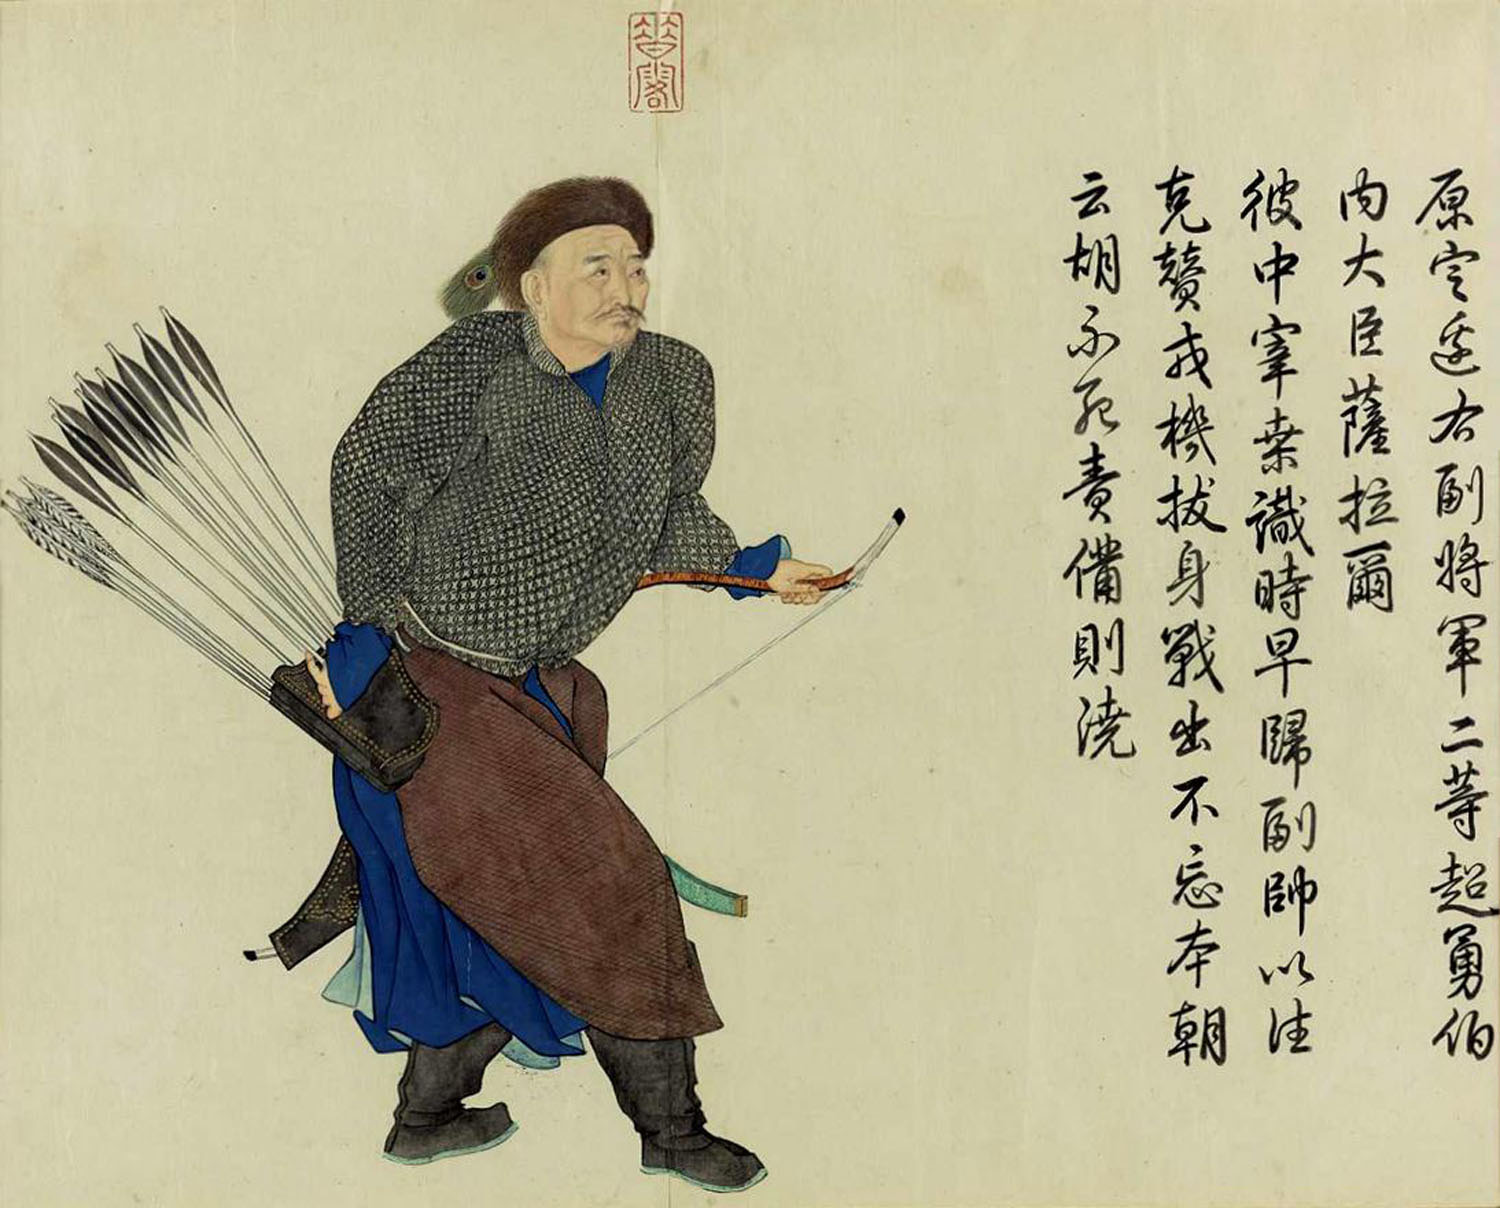 原定邊右副將軍二等超勇伯
内大臣薩拉爾
彼中宰桑識時早歸副帥以往
克贊戎機拔身戰出不忘本朝
云胡不死責備則澆